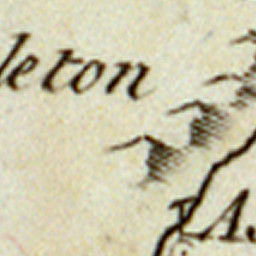 leton
As